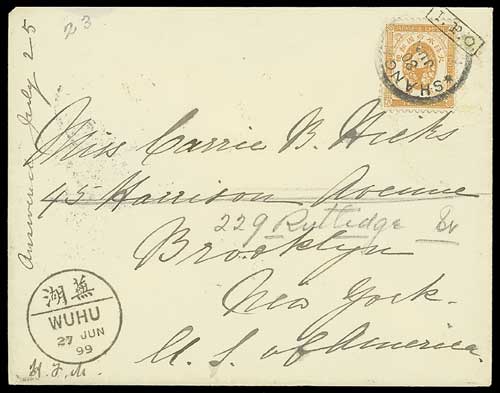 23
Answered July 25
I.P.O.
SHANG
Miss Carrie B. Hicks
45 Harrison Avenue
229 Rutledge
Brooklyn
New York.
U. S. of America.
蕪湖
WUHU
27 JUN
99